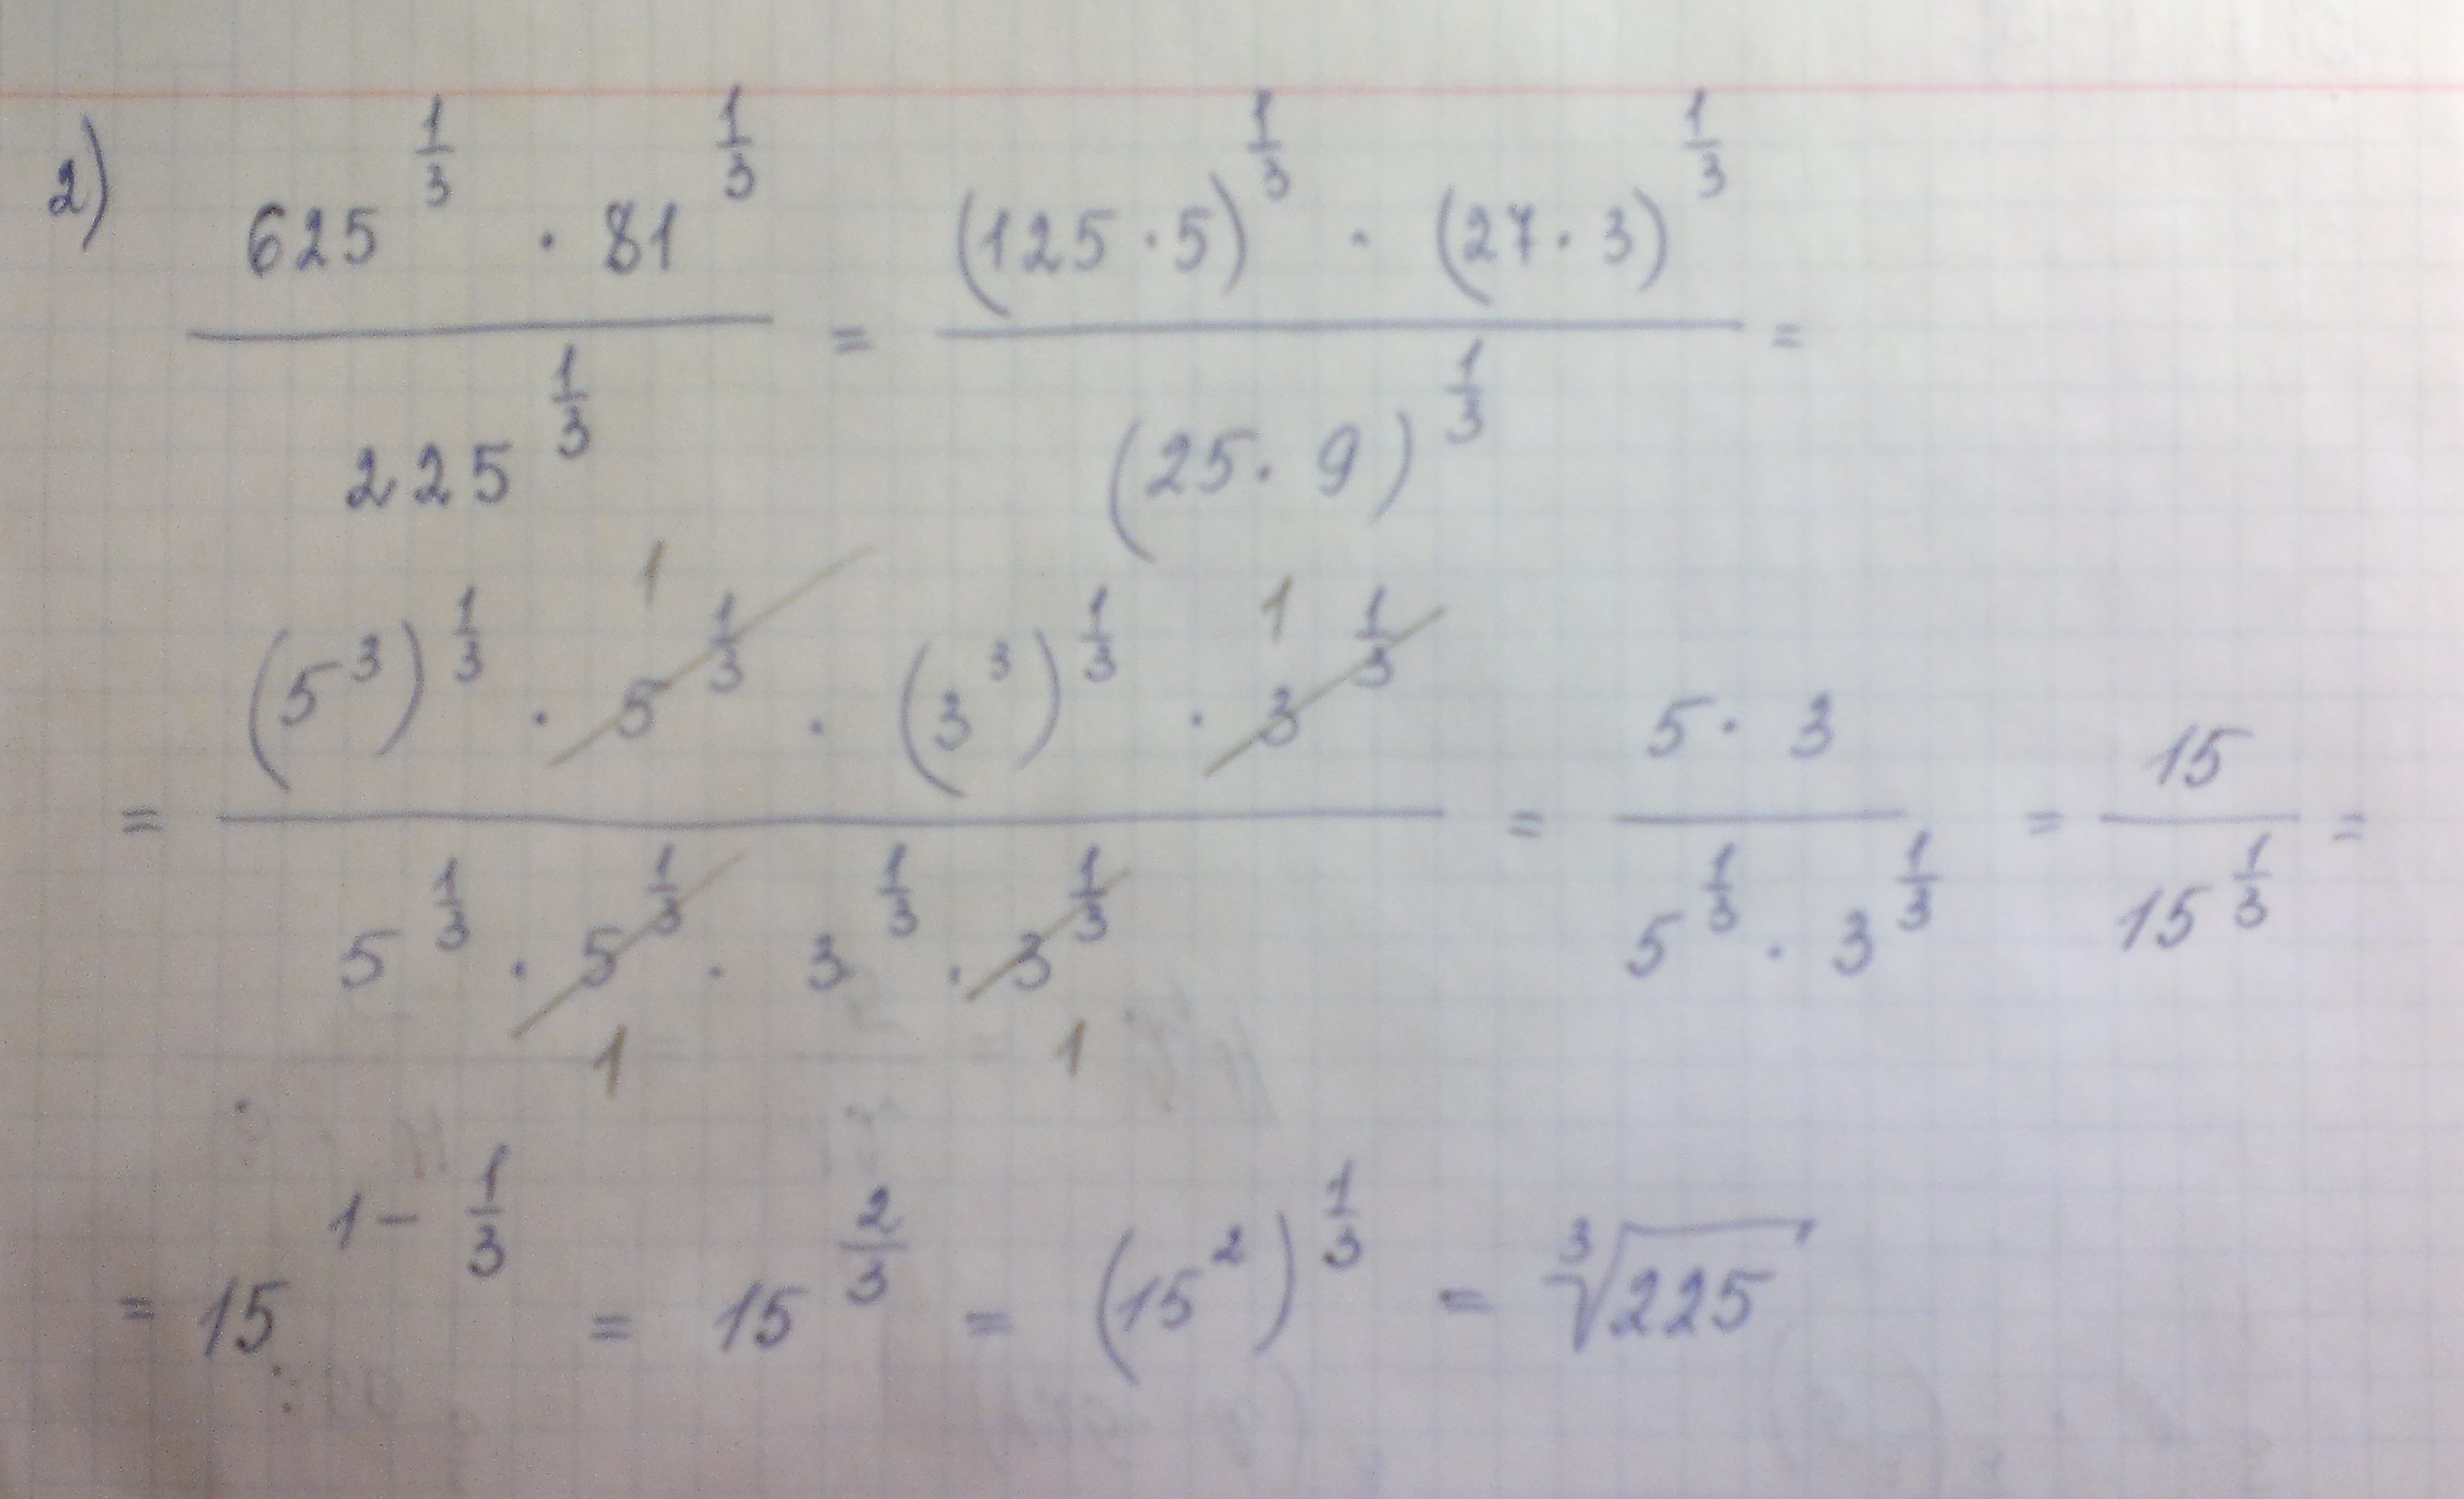 2) (625^(1/3) · 81^(1/3)) / 225^(1/3) = ((125 · 5)^(1/3) · (27 · 3)^(1/3)) / (25 · 9)^(1/3) =
= ((5^3)^(1/3) · 5^(1/3) · (3^3)^(1/3) · 3^(1/3)) / (5^(1/3) · 5^(1/3) · 3^(1/3) · 3^(1/3)) = (5 · 3) / (5^(1/3) · 3^(1/3)) = 15 / 15^(1/3) =
= 15^(1 - 1/3) = 15^(2/3) = (15^2)^(1/3) = ∛225